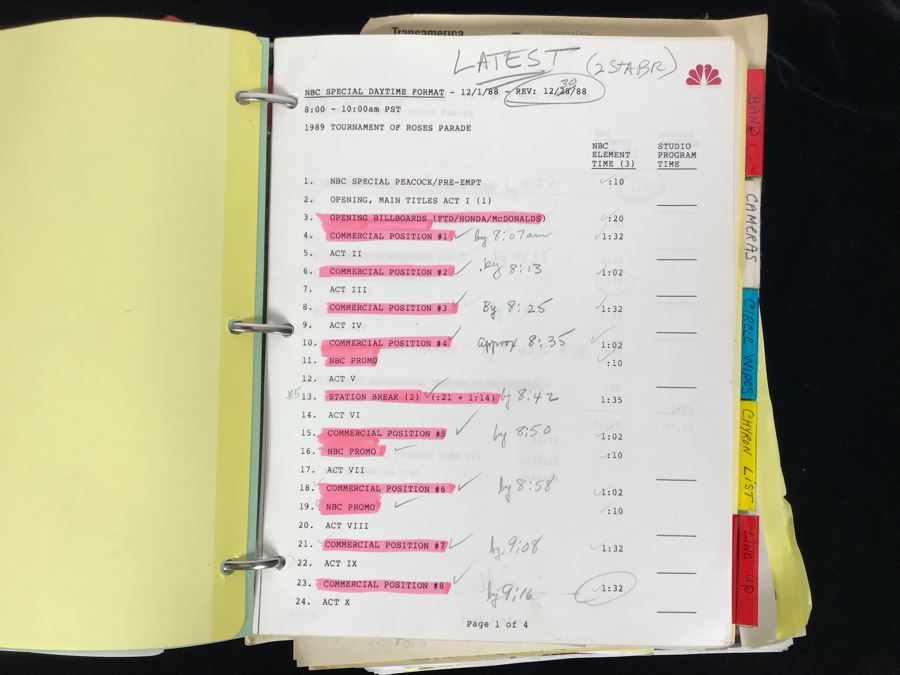 Transamerica
LATEST (2 STA BR)
NBC SPECIAL DAYTIME FORMAT - 12/1/88 - REV: 12/28/88
30
8:00 - 10:00am PST
1989 TOURNAMENT OF ROSES PARADE
NBC ELEMENT TIME (3)
STUDIO PROGRAM TIME
1. NBC SPECIAL PEACOCK/PRE-EMPT :10
2. OPENING, MAIN TITLES ACT I (1)
3. OPENING BILLBOARDS (FTD/HONDA/McDONALDS) :20
4. COMMERCIAL POSITION #1 ✓ by 8:07am 1:32
5. ACT II
6. COMMERCIAL POSITION #2 ✓ by 8:13 1:02
7. ACT III
8. COMMERCIAL POSITION #3 ✓ By 8:25 1:32
9. ACT IV
10. COMMERCIAL POSITION #4 ✓ approx 8:35 1:02
11. NBC PROMO :10
12. ACT V
13. STATION BREAK (2) ✓ (:21 + 1:14) by 8:42 1:35
14. ACT VI
15. COMMERCIAL POSITION #5 ✓ by 8:50 1:02
16. NBC PROMO ✓ :10
17. ACT VII
18. COMMERCIAL POSITION #6 ✓ by 8:58 1:02
19. NBC PROMO ✓ :10
20. ACT VIII
21. COMMERCIAL POSITION #7 ✓ by 9:08 1:32
22. ACT IX
23. COMMERCIAL POSITION #8 ✓ by 9:16 1:32
24. ACT X
Page 1 of 4
BAND
CAMERAS
CIRCLE WIPES
CHYRON LIST
LINE UP